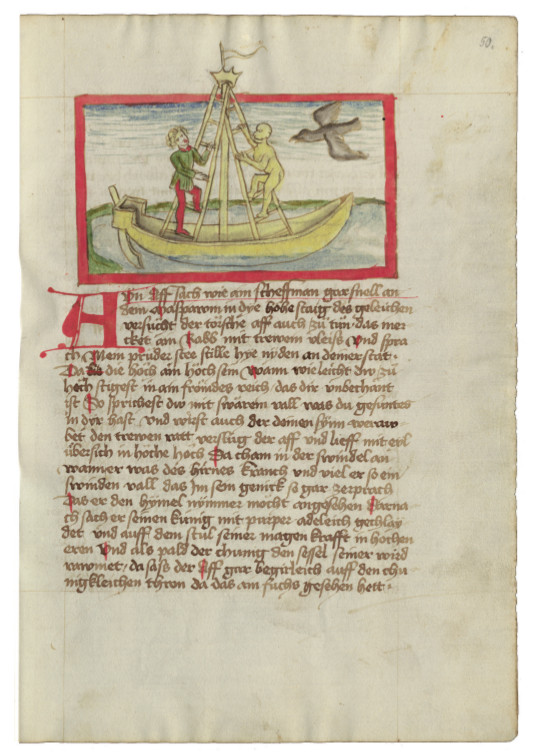 50.
Ain Aff sach wie ain scheffman gar snell an
dem Maspawm in dye höhe staig des geleichen
versücht der törsche aff auch zü tün das mer
cket ain Rabb mit trewem vleiss Vnd spra
ch Mein prüder stee stille hye niden an deiner stat
die die höch am höchsten Wann wie leicht dw zü
höch stigest in ain frömdes reich das dir vnbechant
ist So sprichest dw mit swärem vall was du gesuntes
in dyr hast vnd wirst auch der deinen synn
bet den trewen ratt verslüg der aff vnd lieff mit eyl
übersich in höche hoch Da cham in der swindel an
wann er was des hirnes kranch vnd viel er so ein
swinden vall das Im sein genick so gar zerprach
Das er den hymel nymmer mocht angesehen Darna
ch sach er seinen künig mit purper adeleich gechlay
det vnd auff dem stul seiner magen krafft in hochen
eren Vnd als pald der chunig den sessel seiner wird
rawmet da sass der Aff gar begirleich auff den chü
nigkleichen thron da das ain fuchs gesehen hett